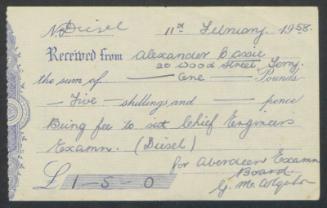 No Diesel 11th February 1958.
Received from Alexander Cassie
20 Wood Street, Torry
the sum of — One — Pounds
— Five — shillings and — — pence
Being fee to sit Chief Engineers
Examn. (Diesel)
for Aberdeen Examn
Board
£ 1 - 5 - 0
G. Mc